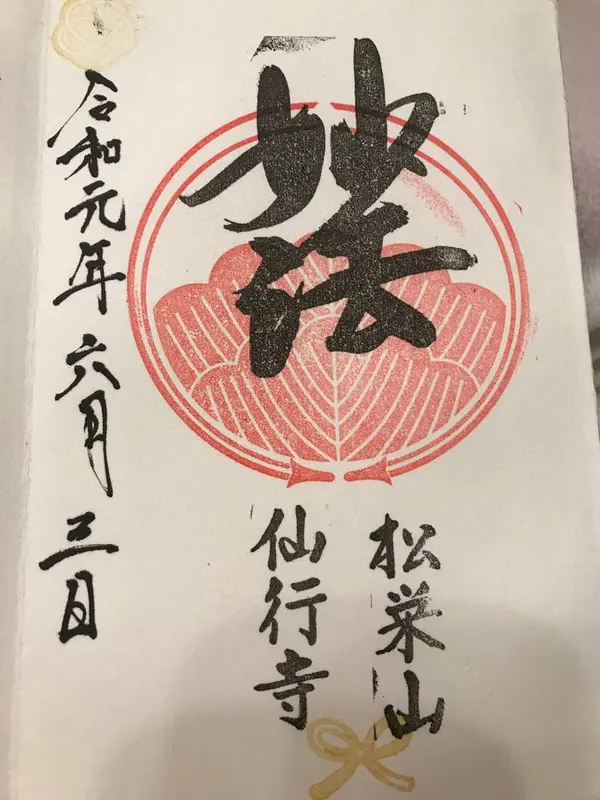 妙法
松栄山
仙行寺
令和元年六月三日